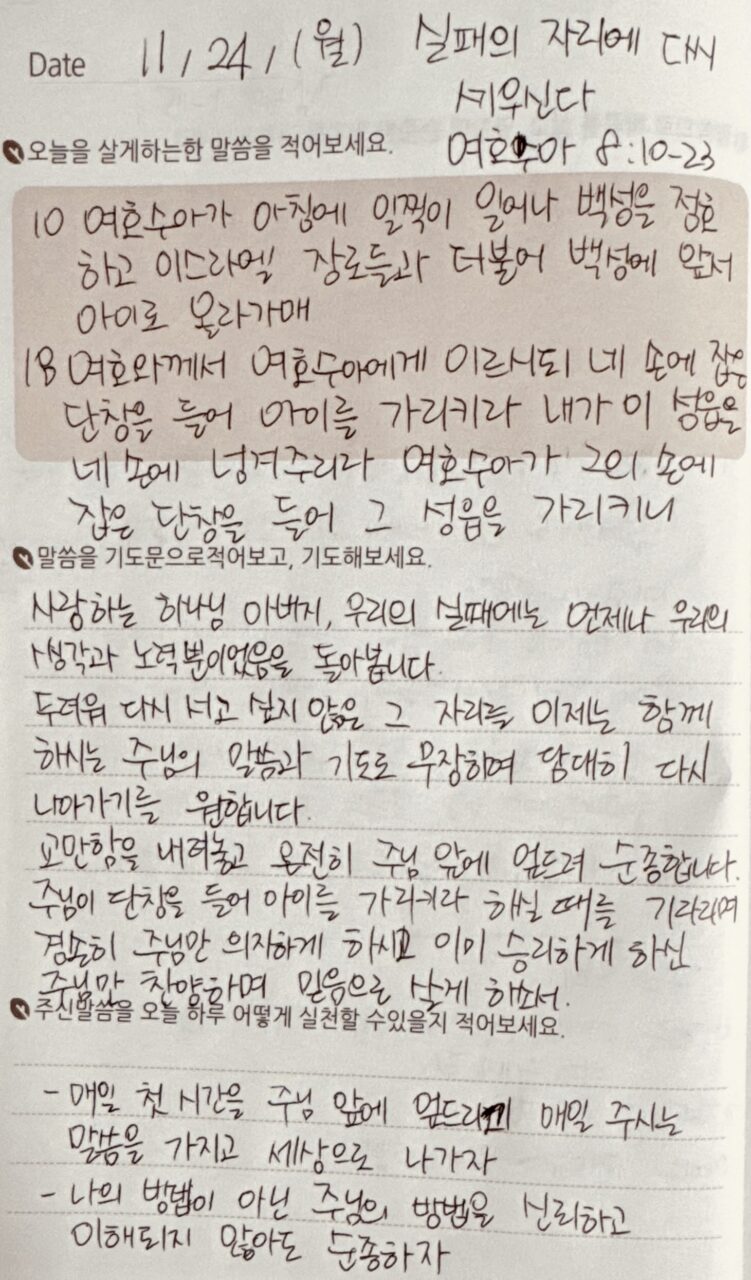 Date 11/24/(월) 실패의 자리에 다시
세우신다
오늘을 살게하는한 말씀을 적어보세요. 여호수아 8:10-23
10 여호수아가 아침에 일찍이 일어나 백성을 점호
하고 이스라엘 장로들과 더불어 백성에 앞서
아이로 올라가매
18 여호와께서 여호수아에게 이르시되 네 손에 잡은
단창을 들어 아이를 가리키라 내가 이 성읍을
네 손에 넘겨주리라 여호수아가 그의 손에
잡은 단창을 들어 그 성읍을 가리키니
말씀을 기도문으로적어보고, 기도해보세요.
사랑하는 하나님 아버지, 우리의 실패에는 언제나 우리의
생각과 노력뿐이었음을 돌아봅니다.
두려워 다시 서고 싶지 않은 그 자리를 이제는 함께
하시는 주님의 말씀과 기도로 무장하며 담대히 다시
나아가기를 원합니다.
교만함을 내려놓고 온전히 주님 앞에 엎드려 순종합니다.
주님이 단창을 들어 아이를 가리키라 하실 때를 기다리며
겸손히 주님만 의지하게 하시고 이미 승리하게 하신
주님만 찬양하며 믿음으로 살게 하소서.
주신말씀을 오늘 하루 어떻게 실천할 수있을지 적어보세요.
- 매일 첫 시간을 주님 앞에 엎드리고 매일 주시는
말씀을 가지고 세상으로 나가자
- 나의 방법이 아닌 주님의 방법을 신뢰하고
이해되지 않아도 순종하자